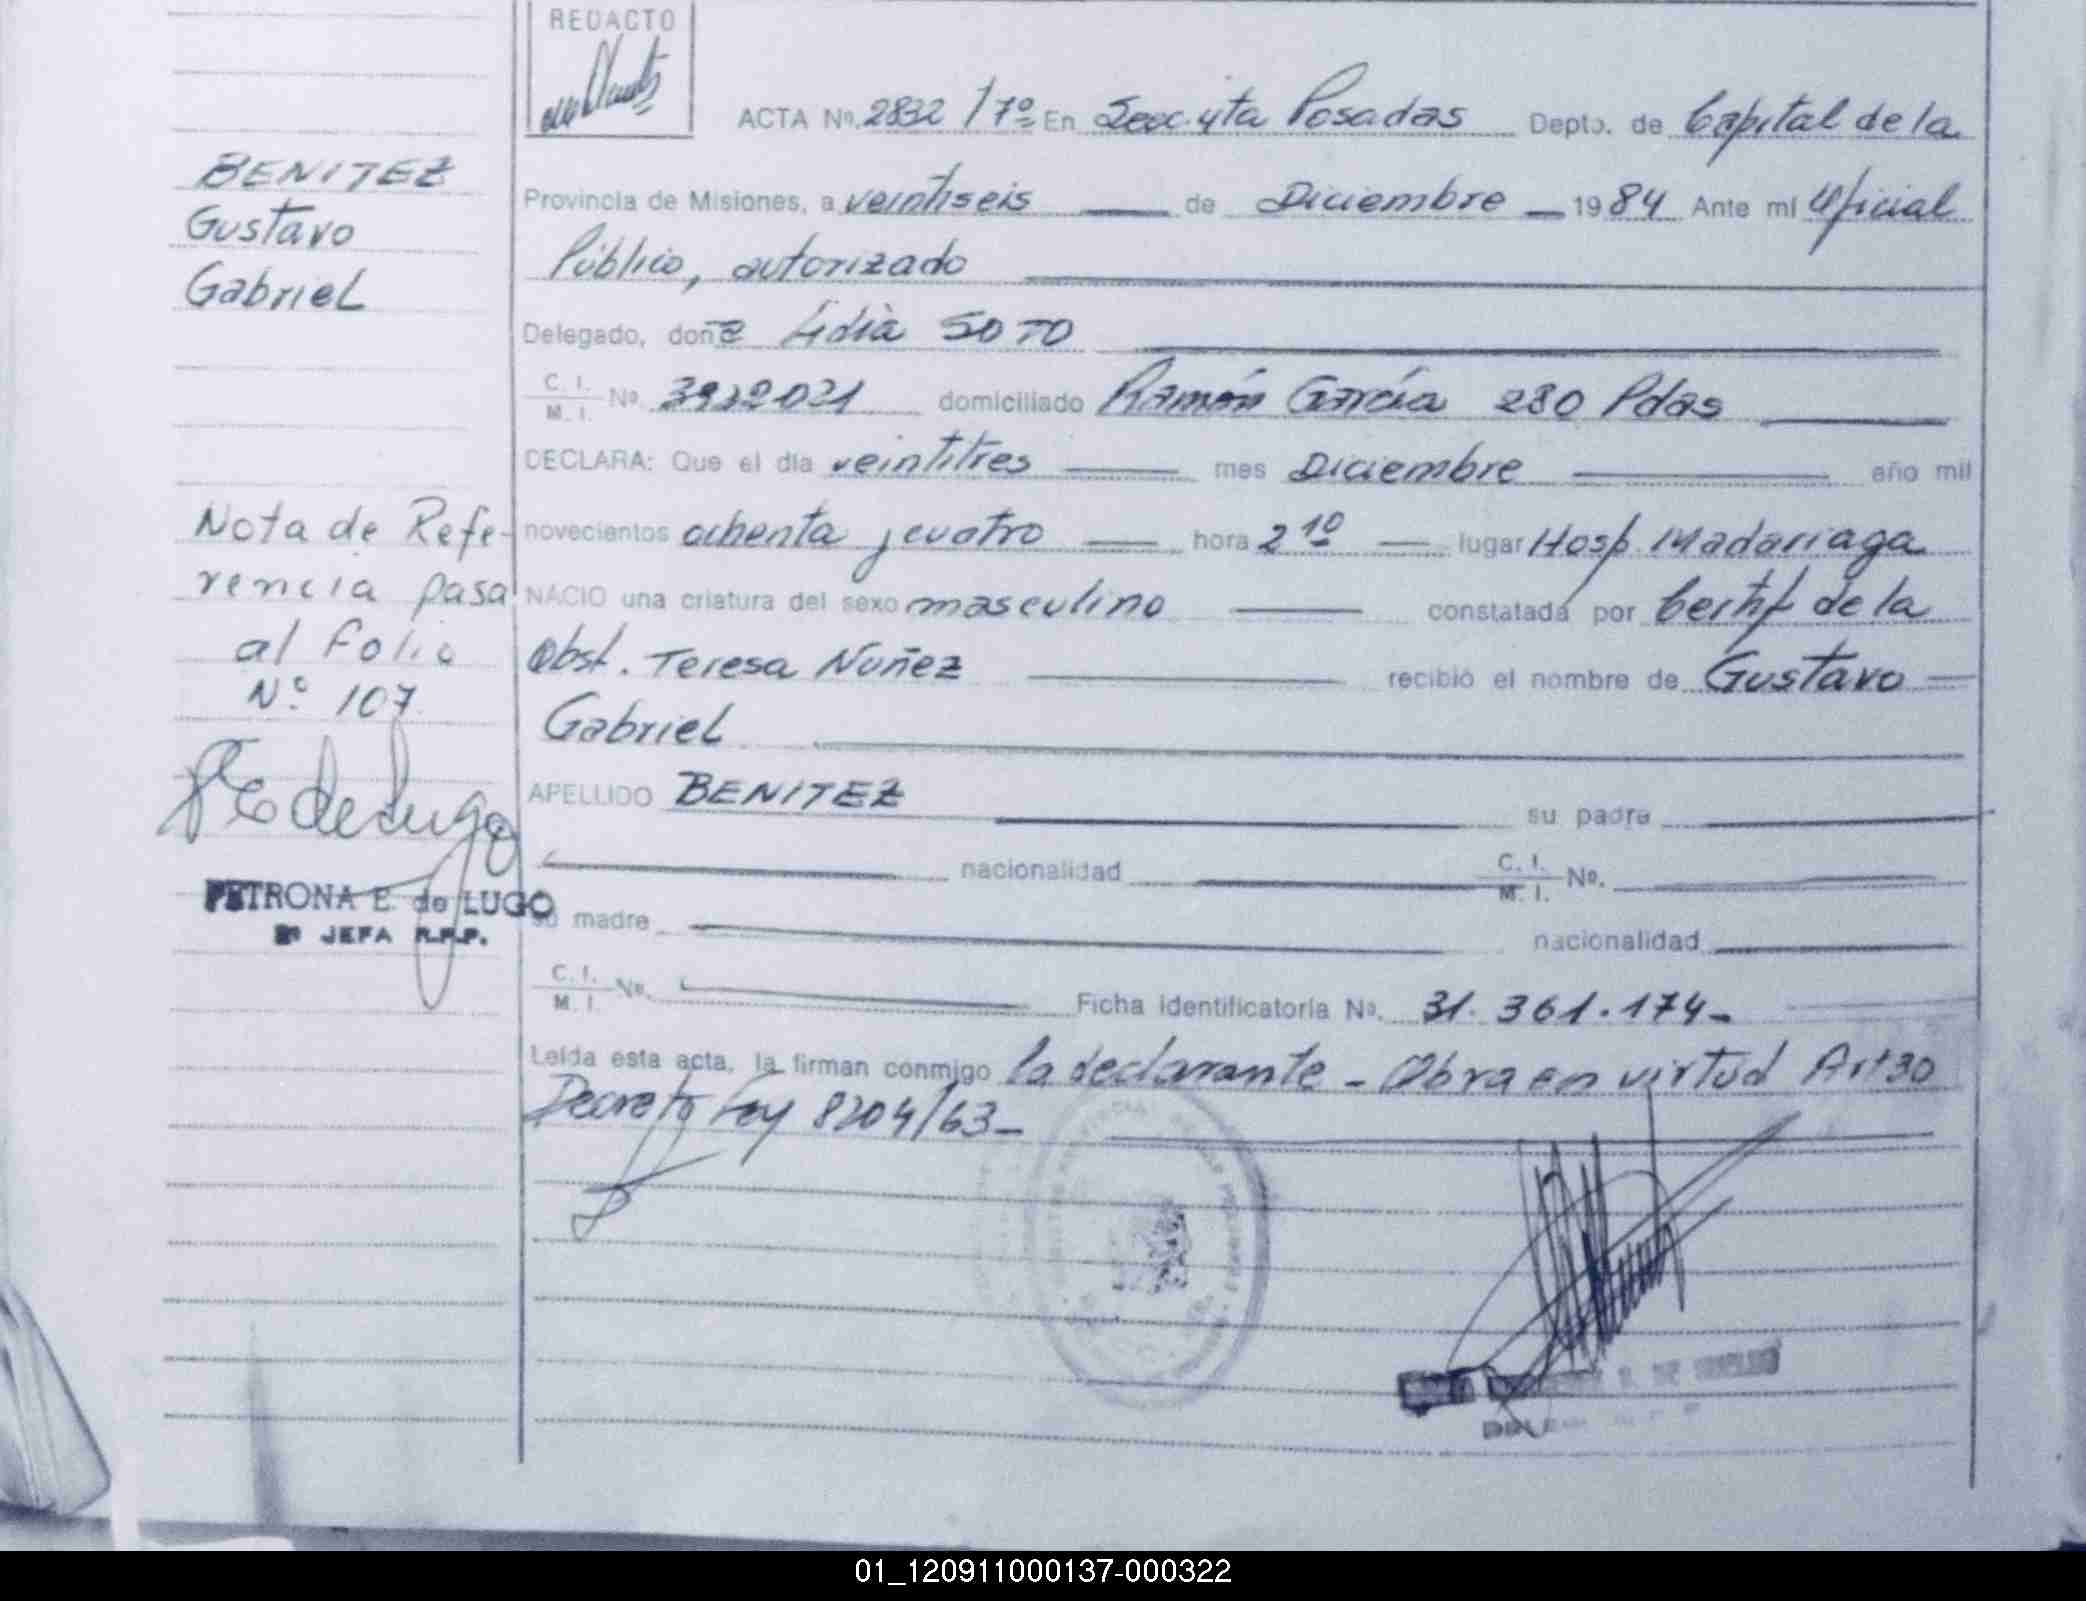 REDACTO
ACTA Nº. 2832 / 7º En Secc. 4ta Posadas Depto. de Capital de la
Provincia de Misiones, a veintiseis de Diciembre 1984 Ante mí Oficial
Público, autorizado
Delegado, doña Lidia SOTO
C. I. / M. I. Nº. domiciliado Ramón García 280 Pdas
DECLARA: Que el día veintitres mes Diciembre año mil
novecientos ochenta y cuatro hora 2 10 lugar Hosp. Madariaga
NACIO una criatura del sexo masculino constatada por Certif de la
Obst. Teresa Nuñez recibió el nombre de Gustavo
Gabriel
APELLIDO BENITEZ su padre
nacionalidad C. I. / M. I. Nº.
su madre nacionalidad
C. I. / M. I. Nº. Ficha identificatoria Nº. 31.361.174-
Leída esta acta, la firman conmigo la declarante - Obra en virtud Art 30
Decreto Ley 8204/63-
BENITEZ
Gustavo
Gabriel
Nota de Refe-
rencia pasa
al folio
Nº 107
PETRONA E. de LUGO
JEFA R.P.P.
01_120911000137-000322